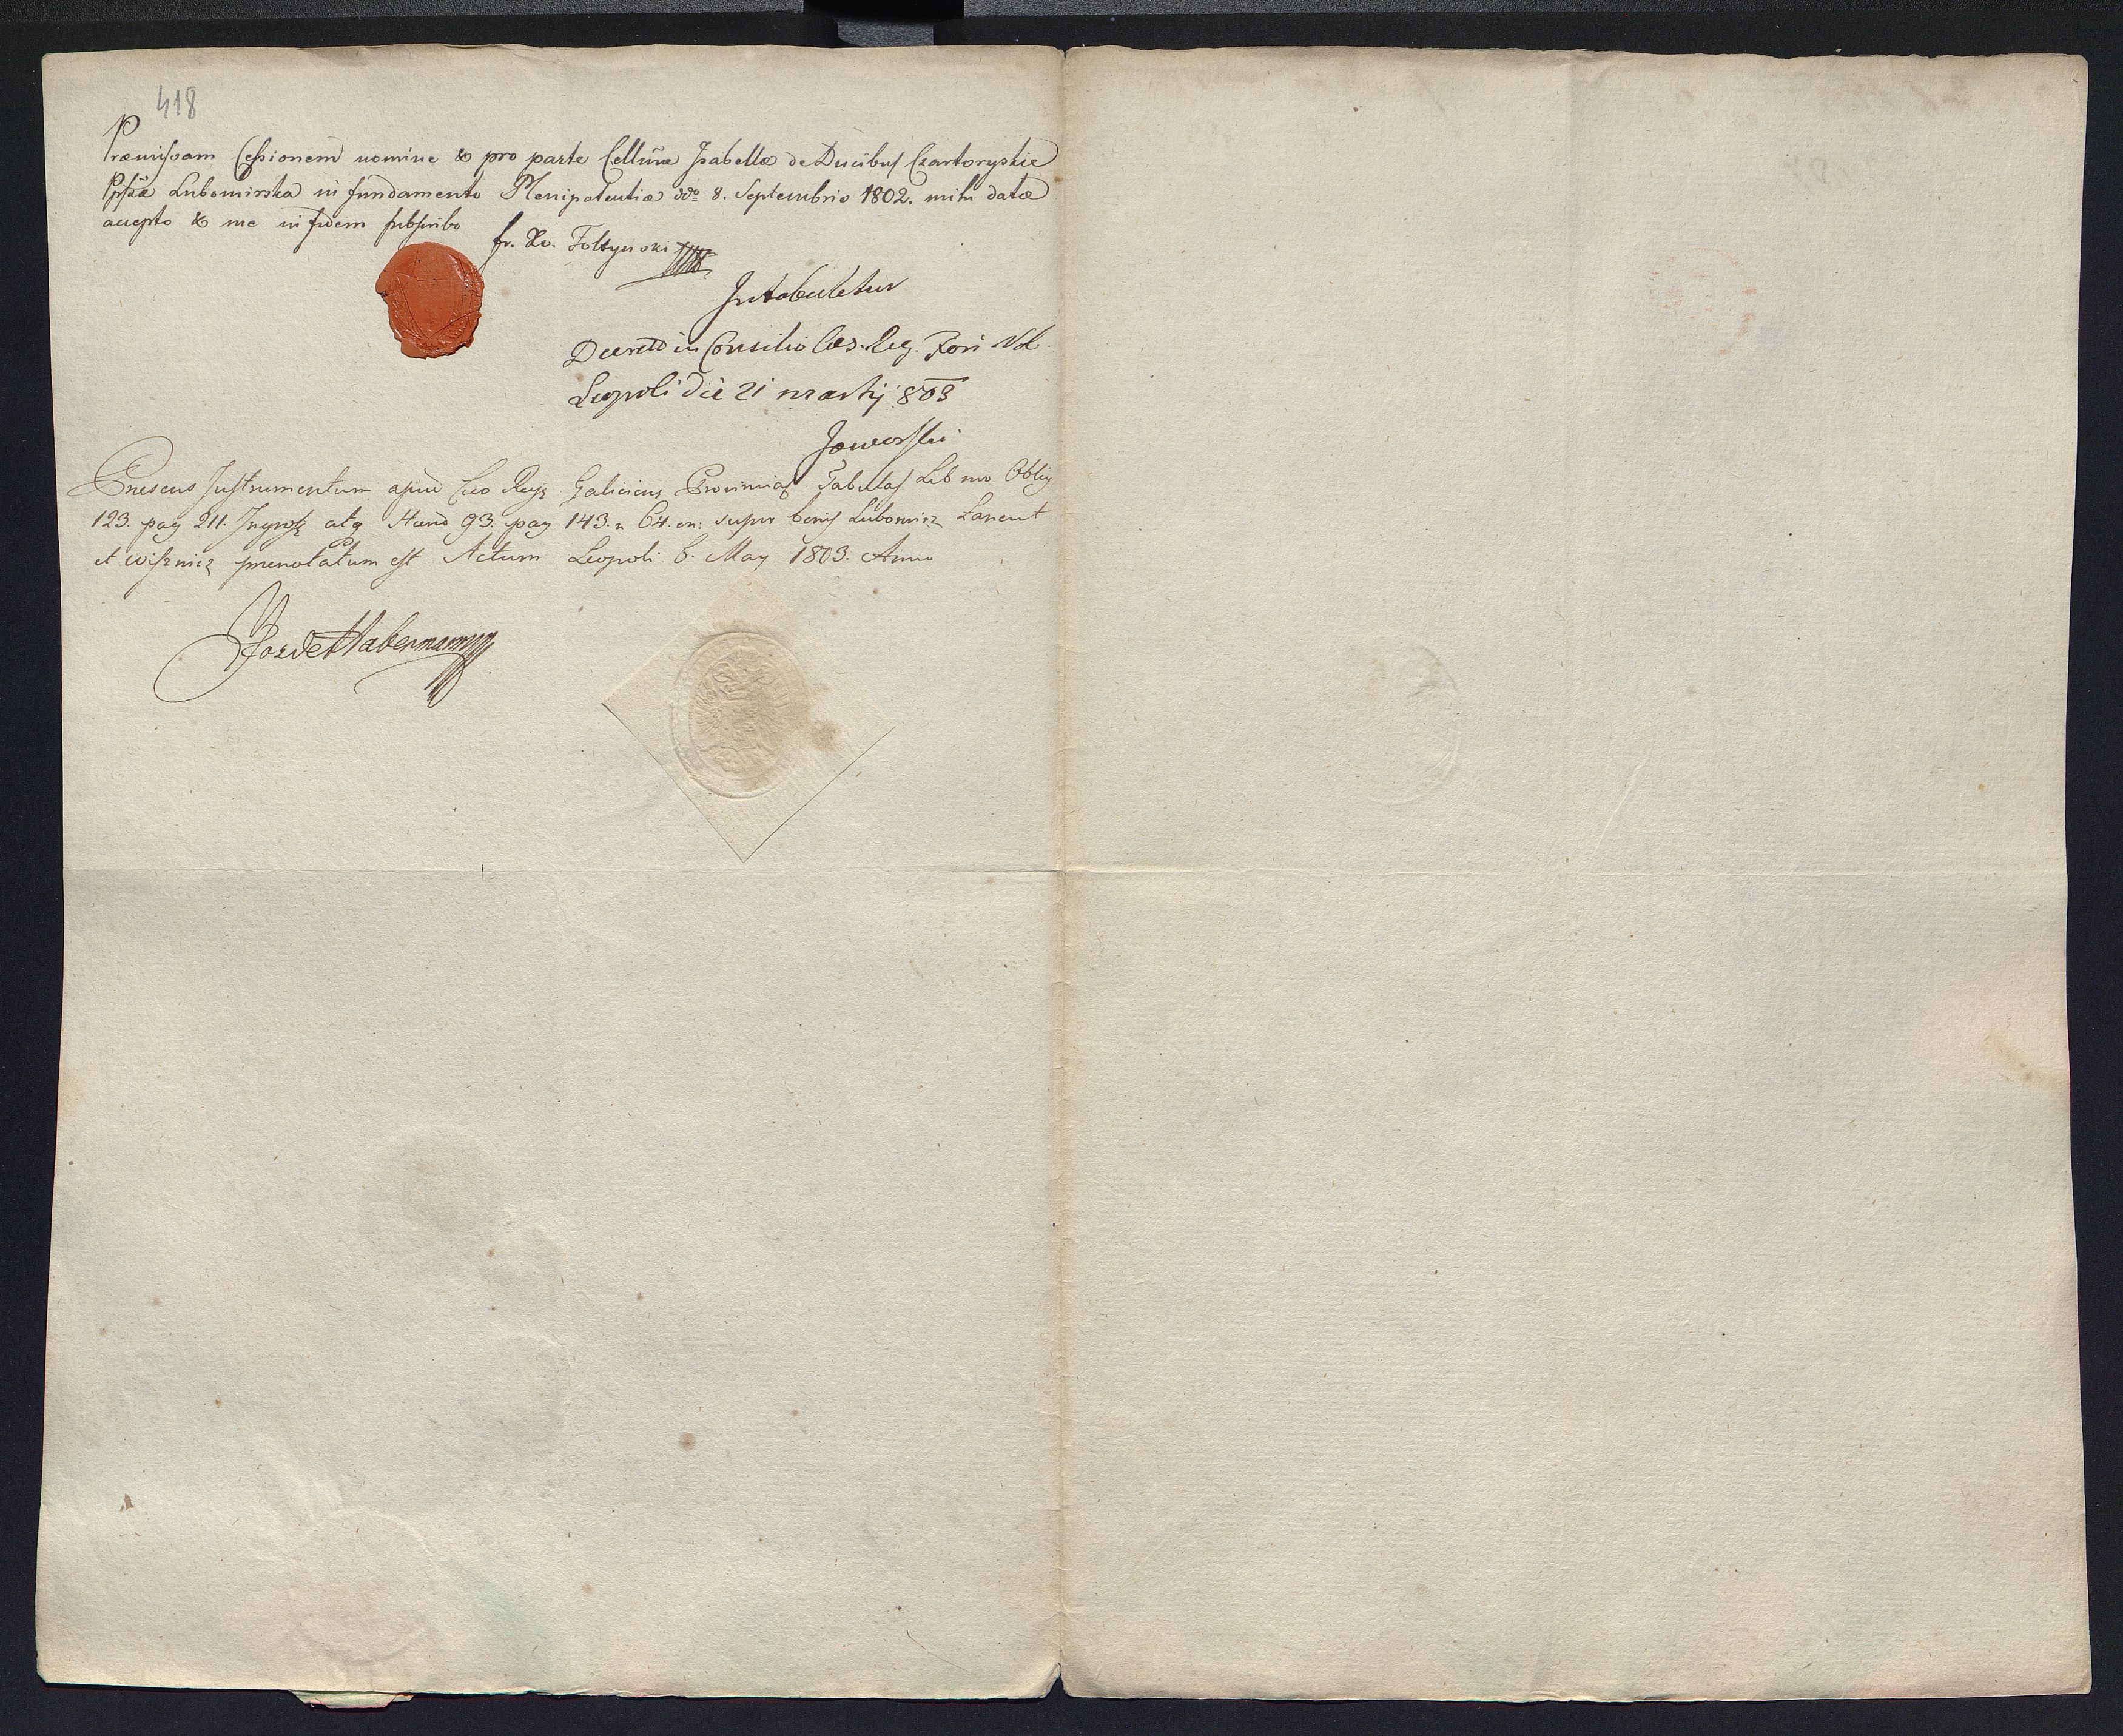 418
Præmissam Cessionem nomine & pro parte Cellmæ Isabellæ de Ducibus Czartoryskie
Ppssæ Lubomirska in fundamento Plenipotentiæ ddo 8. Septembris 1802. mihi datæ
accepto & me in fidem subscribo
fr. Xv. Foltynski
Intabuletur
Decreto in Consilio Cæs. Reg. Fori Nob.
Leopoli die 21 martij 803
Jaworski
Presens Instrumentum apud Ceo Reg Galiciens Provincias Tabulas Lib nro Oblig
123. pag 211. Ingross atq Haud 93. pag 143. n 64. on: super bonis Lubomirz Lancut
et Wisznicz prenotatum est Actum Leopoli 6. May 1803. Anno
Habermann